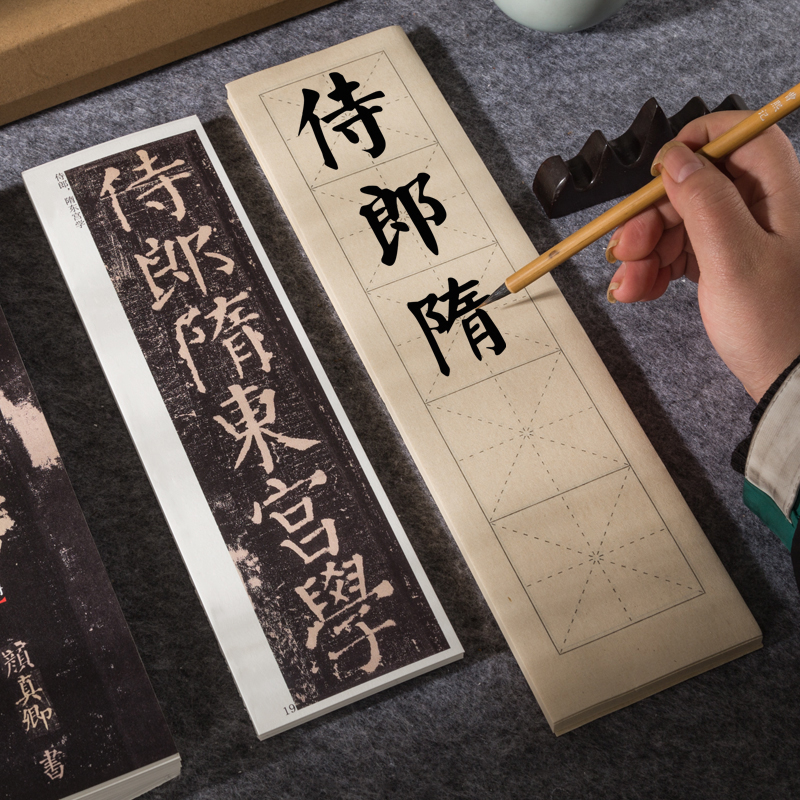 侍郎隋
侍郎隋東宮學
侍郎、隋东宫学
19
顏真卿 書